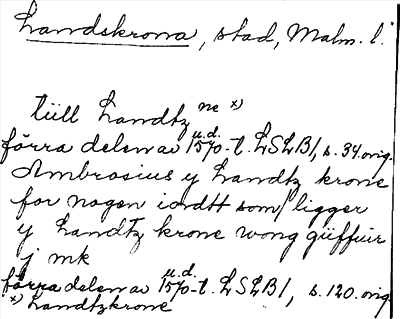 Landskrona, stad, Malm. l.
tüll Landtz ne x)
förra delen av u.d. 1570-t. LSLB1, s. 34. orig.
Ambrosius y Landtz krone
for nogen iordtt som ligger
y Landtz krone wong güffuir
j mk
förra delen av u.d. 1570-t. LSLB1, s. 120. orig
x) Landtzkrone